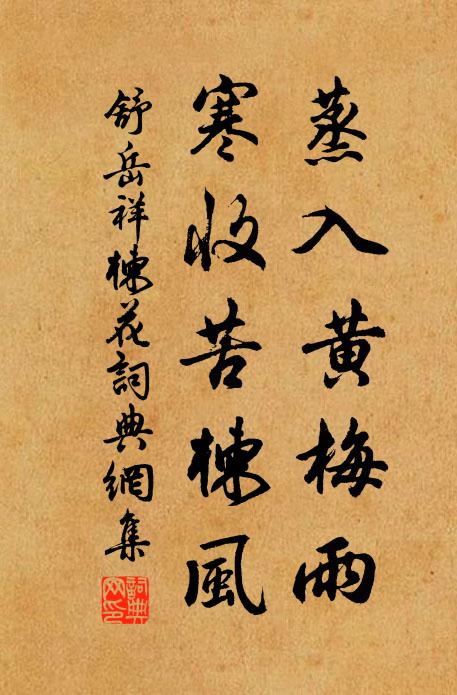 蒸入黄梅雨
寒收苦楝風
舒岳祥楝花詞典網集
詞典网印